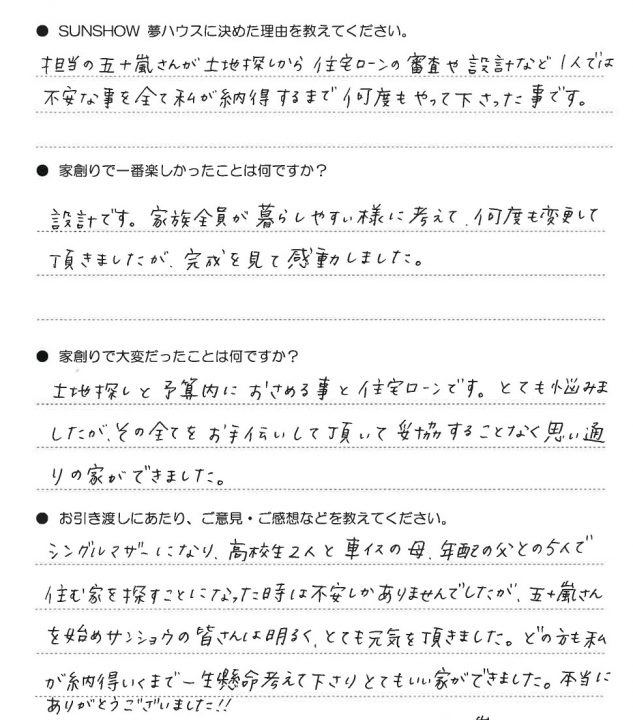 ● SUNSHOW 夢ハウスに決めた理由を教えてください。
担当の五十嵐さんが土地探しから住宅ローンの審査や設計など1人では
不安な事を全て私が納得するまで何度もやって下さった事です。
● 家創りで一番楽しかったことは何ですか？
設計です。家族全員が暮らしやすい様に考えて、何度も変更して
頂きましたが、完成を見て感動しました。
● 家創りで大変だったことは何ですか？
土地探しと予算内におさめる事と住宅ローンです。とても悩みま
したが、その全てをお手伝いして頂いて妥協することなく思い通
りの家ができました。
● お引き渡しにあたり、ご意見・ご感想などを教えてください。
シングルマザーになり、高校生2人と車イスの母、年配の父との5人で
住む家を探すことになった時は不安しかありませんでしたが、五十嵐さん
を始めサンショウの皆さんは明るく、とても元気を頂きました。どの方も私
が納得いくまで一生懸命考えて下さりとてもいい家ができました。本当に
ありがとうございました!!